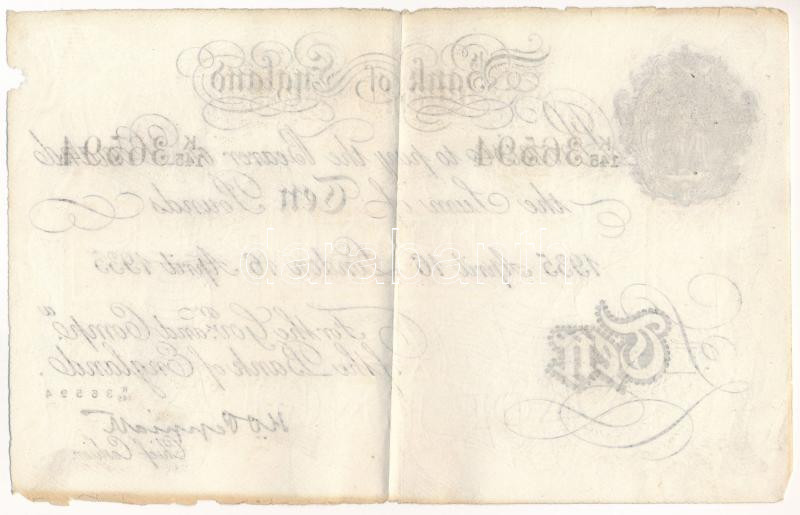 Bank of England
K/145 36594 K/145 36594
I Promise to pay the Bearer on Demand
the Sum of Ten Pounds
1935 April 16 London 16 April 1935
For the Gov.r and Comp.a
of the Bank of England.
K/145 36594
Ten
K O Peppiatt
Chief Cashier
darabanth